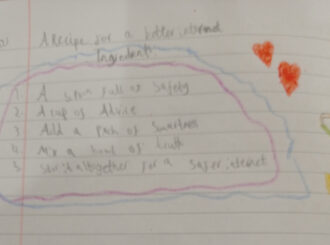 A Recipe for a better internet
Ingredients
1. A full of Safety
2. A cup of Advice
3. Add a Pack of Smartness
4. Mix a bowl of truth
5. Stir it altogether for a safer internet